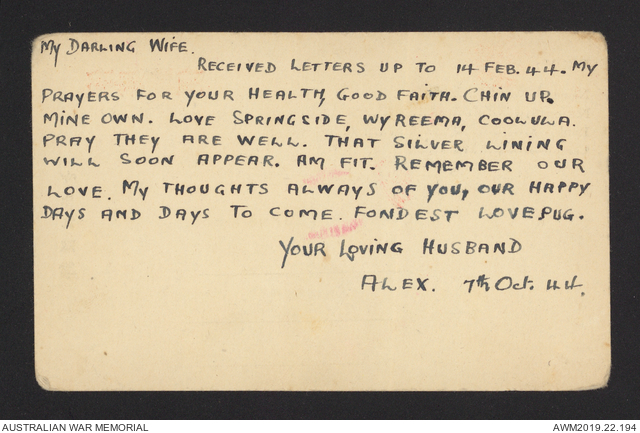 My DARLING WIFE.
RECEIVED LETTERS UP TO 14 FEB. 44. My
PRAYERS FOR YOUR HEALTH, GOOD FAITH. CHIN UP.
MINE OWN. LOVE SPRINGSIDE, WYREEMA, COOLULA.
PRAY THEY ARE WELL. THAT SILVER LINING
WILL SOON APPEAR. AM FIT. REMEMBER OUR
LOVE. My THOUGHTS ALWAYS OF YOU, OUR HAPPY
DAYS AND DAYS TO COME. FONDEST LOVE PUG.
YOUR LOVING HUSBAND
ALEX. 7th Oct. 44.
AUSTRALIAN WAR MEMORIAL
AWM2019.22.194